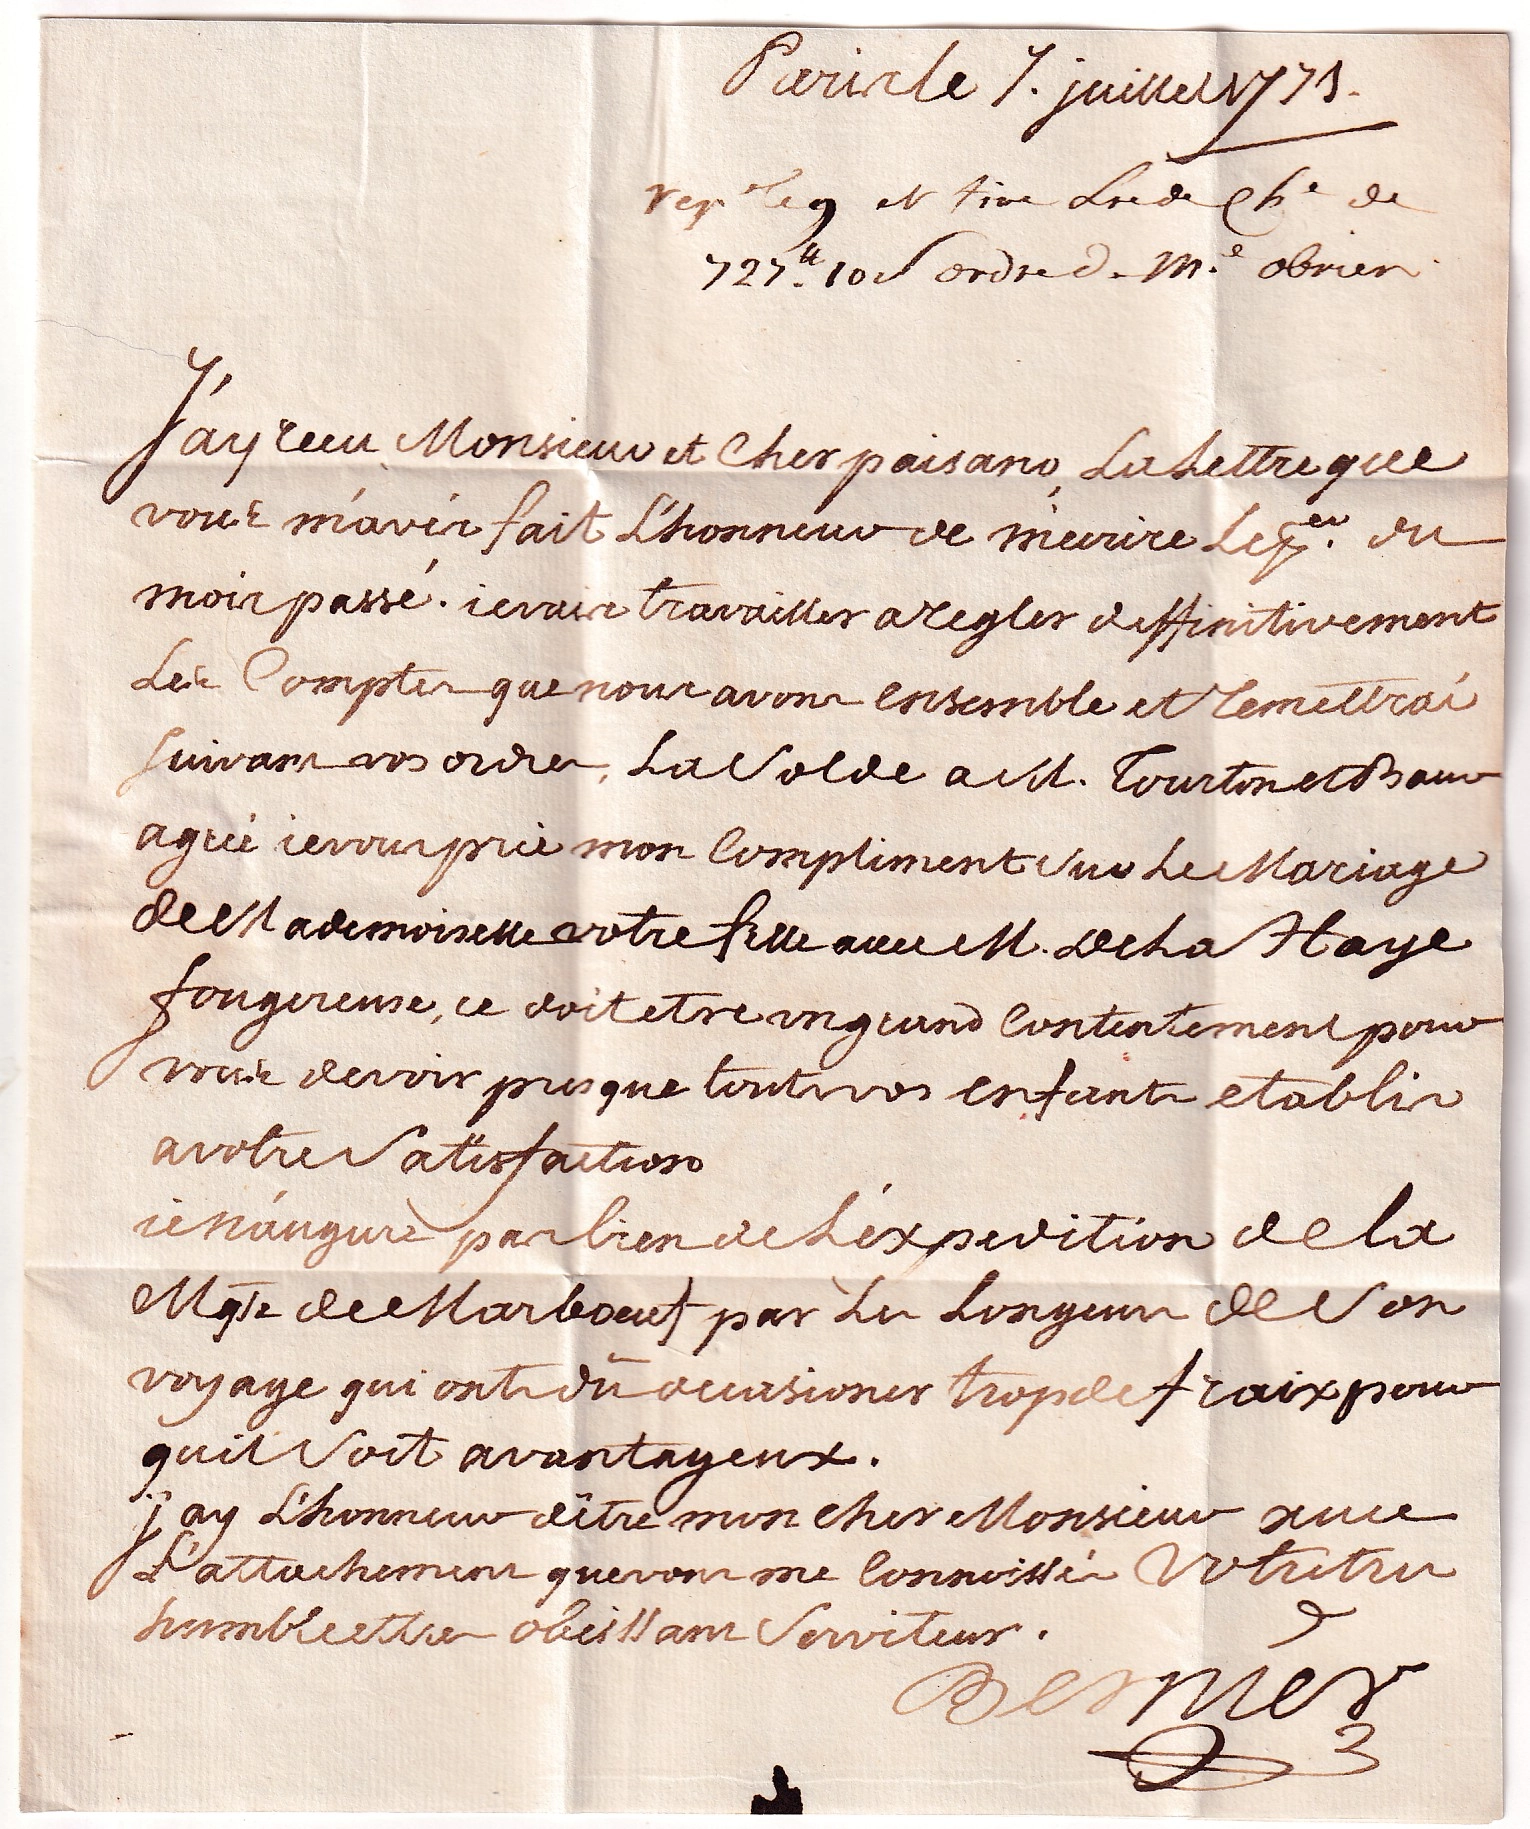 Paris le 7. juillet 1771.
rep le 9 et tiré Lre de Che de
727.tt 10 s ordre de M.e obrien
J'ay recu Monsieur et Cher paisano, La Lettre que
vous m'aves fait L'honneur de m'ecrire Le pr. du
mois passé. ie vais travailler a regler deffinitivement
Les Comptes que nous avons ensemble et remettrai
suivant vos ordres, La Solde a M. Tourton et Baur
agréé ie vous prie mon Compliment sur Le Mariage
de Mademoiselle votre fille avec M. De La Haye
fougereuse, ce doit etre un grand Contentement pour
vous de voir presque tout vos enfants etablis
a votre Satisfaction
ie n'augure pas bien de L'éxpedition de la
Mqse de Marboeuf par Les Longeurs de Son
voyage qui ont dû occasioner trop de fraix pour
quil Soit avantageux.
j'ay L'honneur d'être mon cher Monsieur avec
L'attachement que vous me Connoissés Votre tres
humble et tres obeissant Serviteur.
Bernier